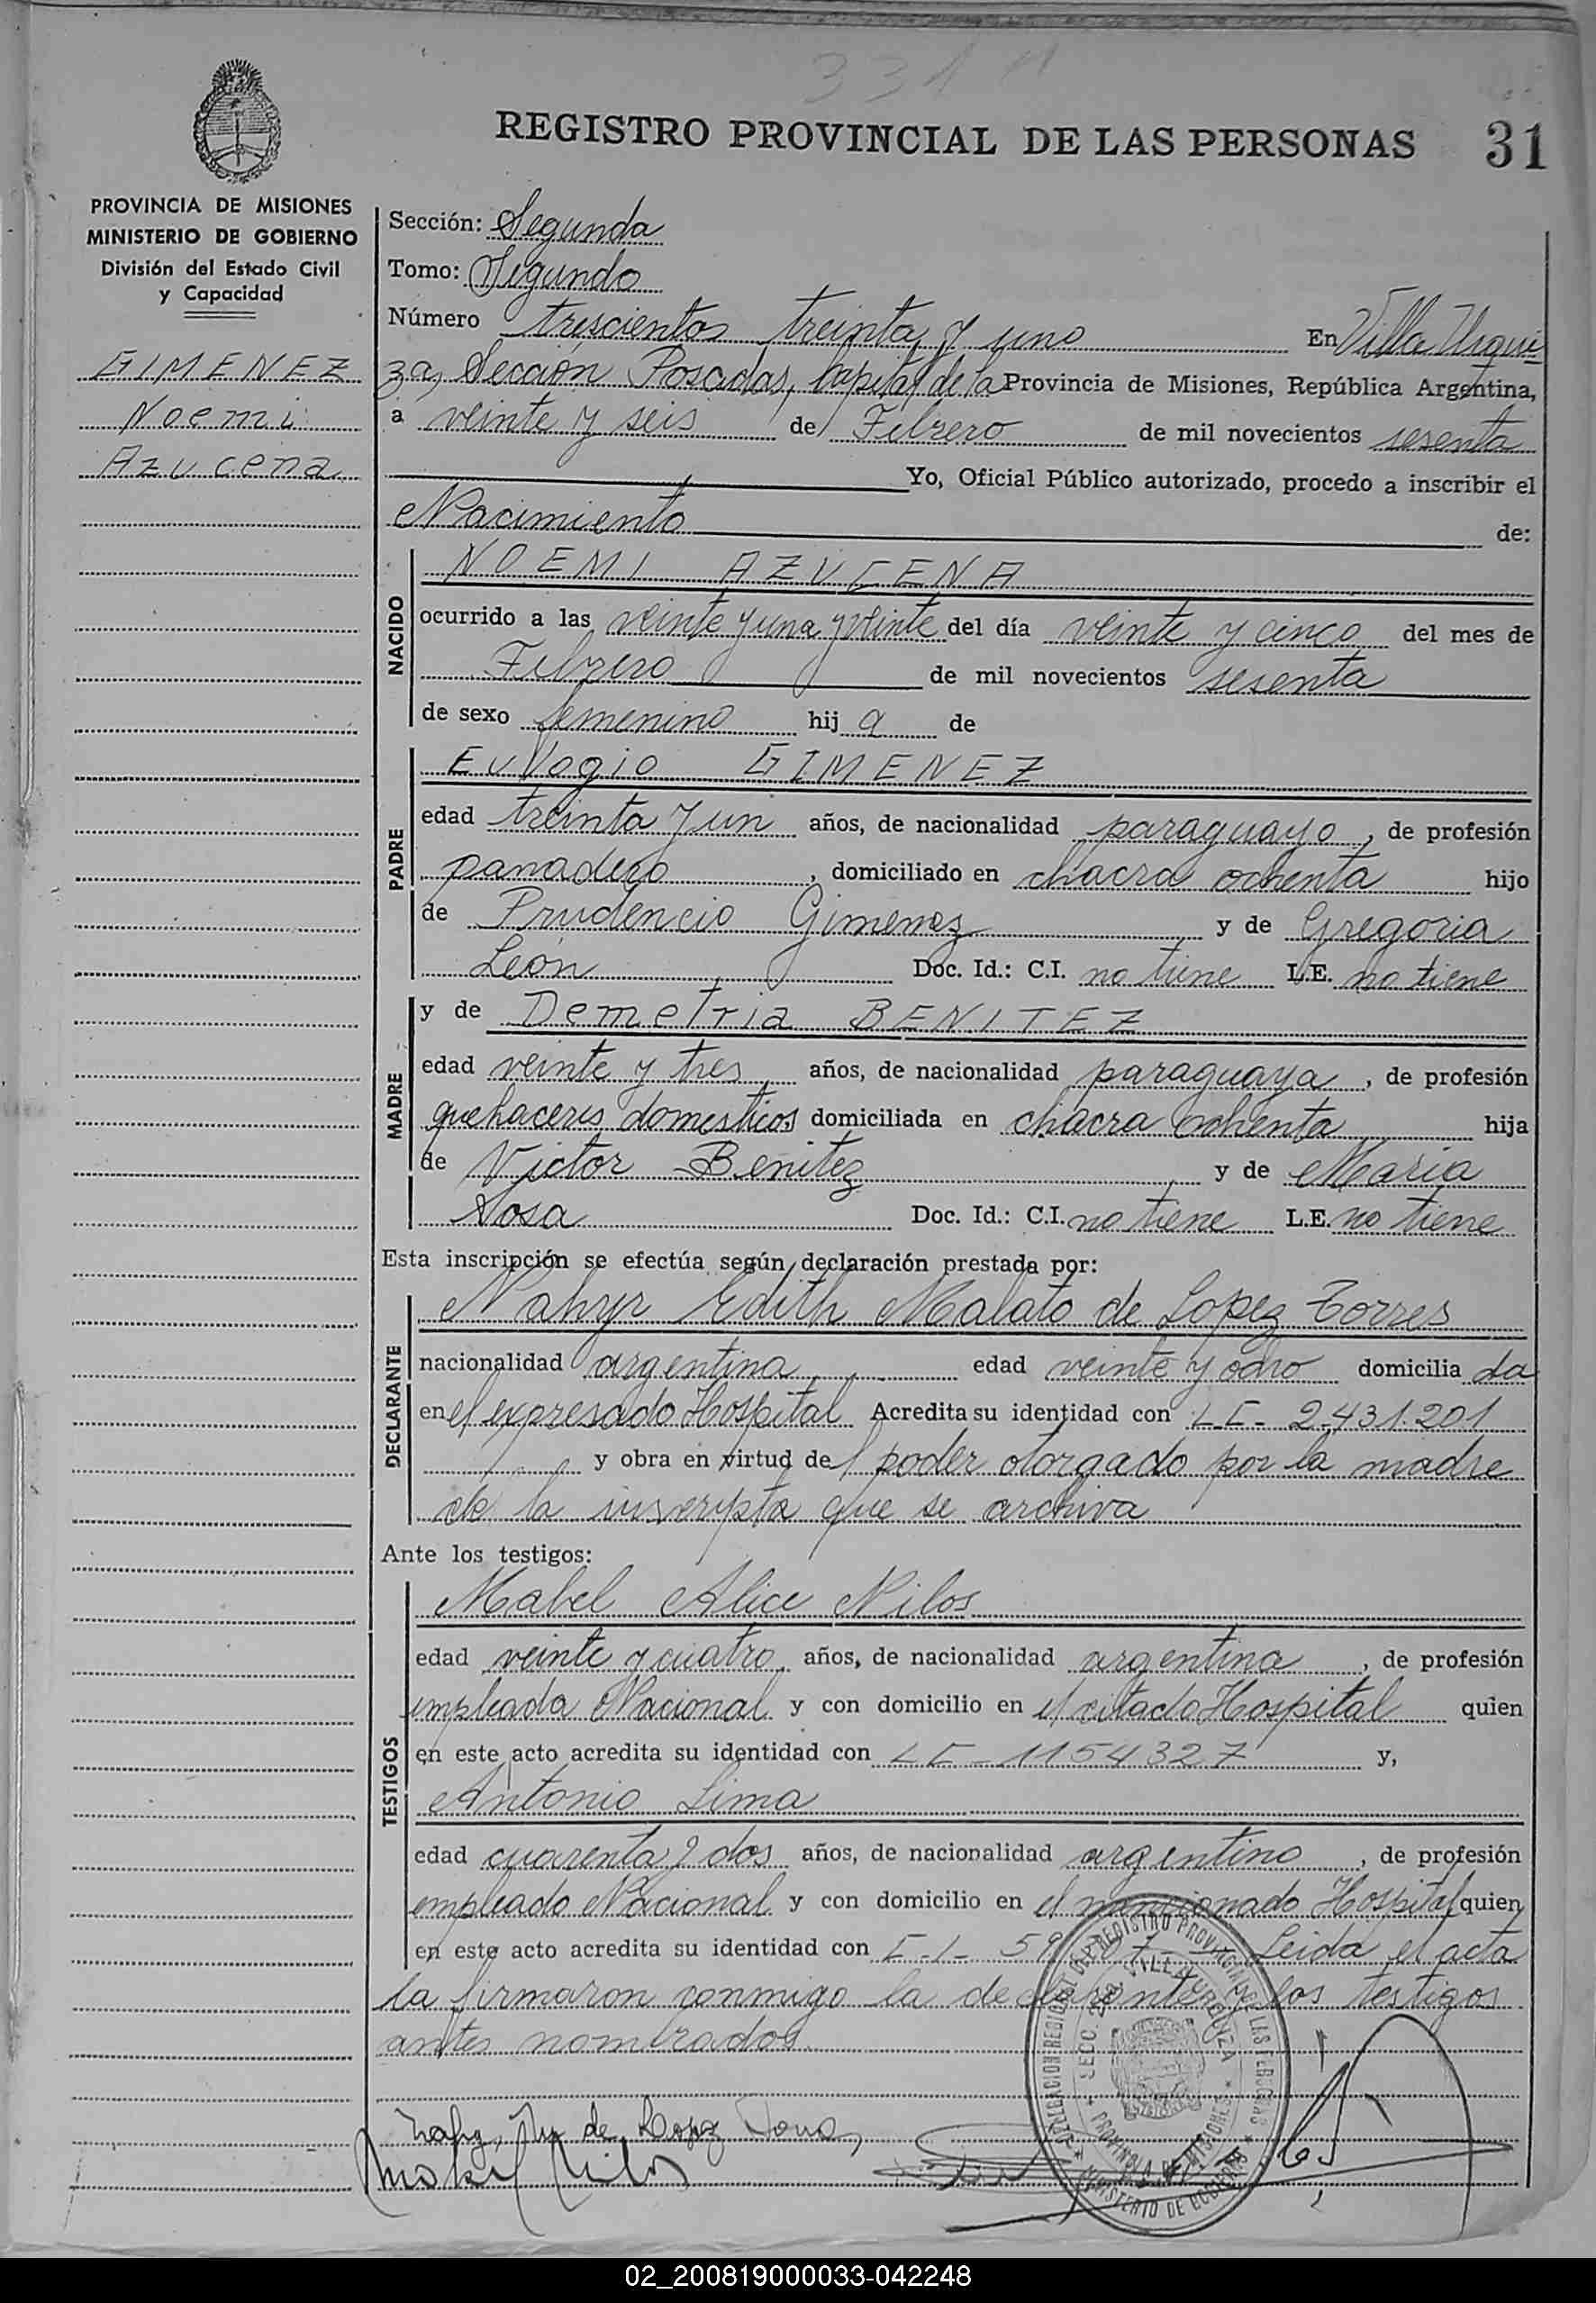 331
REGISTRO PROVINCIAL DE LAS PERSONAS 31
PROVINCIA DE MISIONES
MINISTERIO DE GOBIERNO
División del Estado Civil
y Capacidad
GIMENEZ
Noemi
Azucena
Sección: Segunda
Tomo: Segundo
Número trescientos treinta y uno En Villa Urqui
za, Sección Posadas, Capital de la Provincia de Misiones, República Argentina,
a veinte y seis de Febrero de mil novecientos sesenta
Yo, Oficial Público autorizado, procedo a inscribir el
Nacimiento de:
NACIDO
NOEMI AZUCENA
ocurrido a las veinte y una y veinte del día veinte y cinco del mes de
Febrero de mil novecientos sesenta
de sexo femenino hij a de
PADRE
Eulogio GIMENEZ
edad treinta y un años, de nacionalidad paraguayo, de profesión
panadero, domiciliado en chacra ochenta hijo
de Prudencio Gimenez y de Gregoria
León Doc. Id.: C.I. no tiene L.E. no tiene
MADRE
y de Demetria BENITEZ
edad veinte y tres años, de nacionalidad paraguaya, de profesión
quehaceres domesticos domiciliada en chacra ochenta hija
de Victor Benitez y de Maria
Sosa Doc. Id.: C.I. no tiene L.E. no tiene
Esta inscripción se efectúa según declaración prestada por:
DECLARANTE
Nahyr Edith Malato de Lopez Torres
nacionalidad argentina edad veinte y ocho domicilia da
en el expresado Hospital Acredita su identidad con LC- 2.431.201
y obra en virtud del poder otorgado por la madre
de la inscripta que se archiva
Ante los testigos:
TESTIGOS
Mabel Alice Nilos
edad veinte y cuatro años, de nacionalidad argentina, de profesión
empleada Nacional y con domicilio en el citado Hospital quien
en este acto acredita su identidad con LC-1154327 y,
Antonio Lima
edad cuarenta y dos años, de nacionalidad argentino, de profesión
empleado Nacional y con domicilio en el mencionado Hospital quien
en este acto acredita su identidad con C.I. Leida el acta
la firmaron conmigo la declarante y los testigos
antes nombrados.
de Lopez Torres
Mabel Nilos
SECC. 2da VILLA URQUIZA
PROVINCIA DE MISIONES
MINISTERIO DE GOBIERNO
02_200819000033-042248